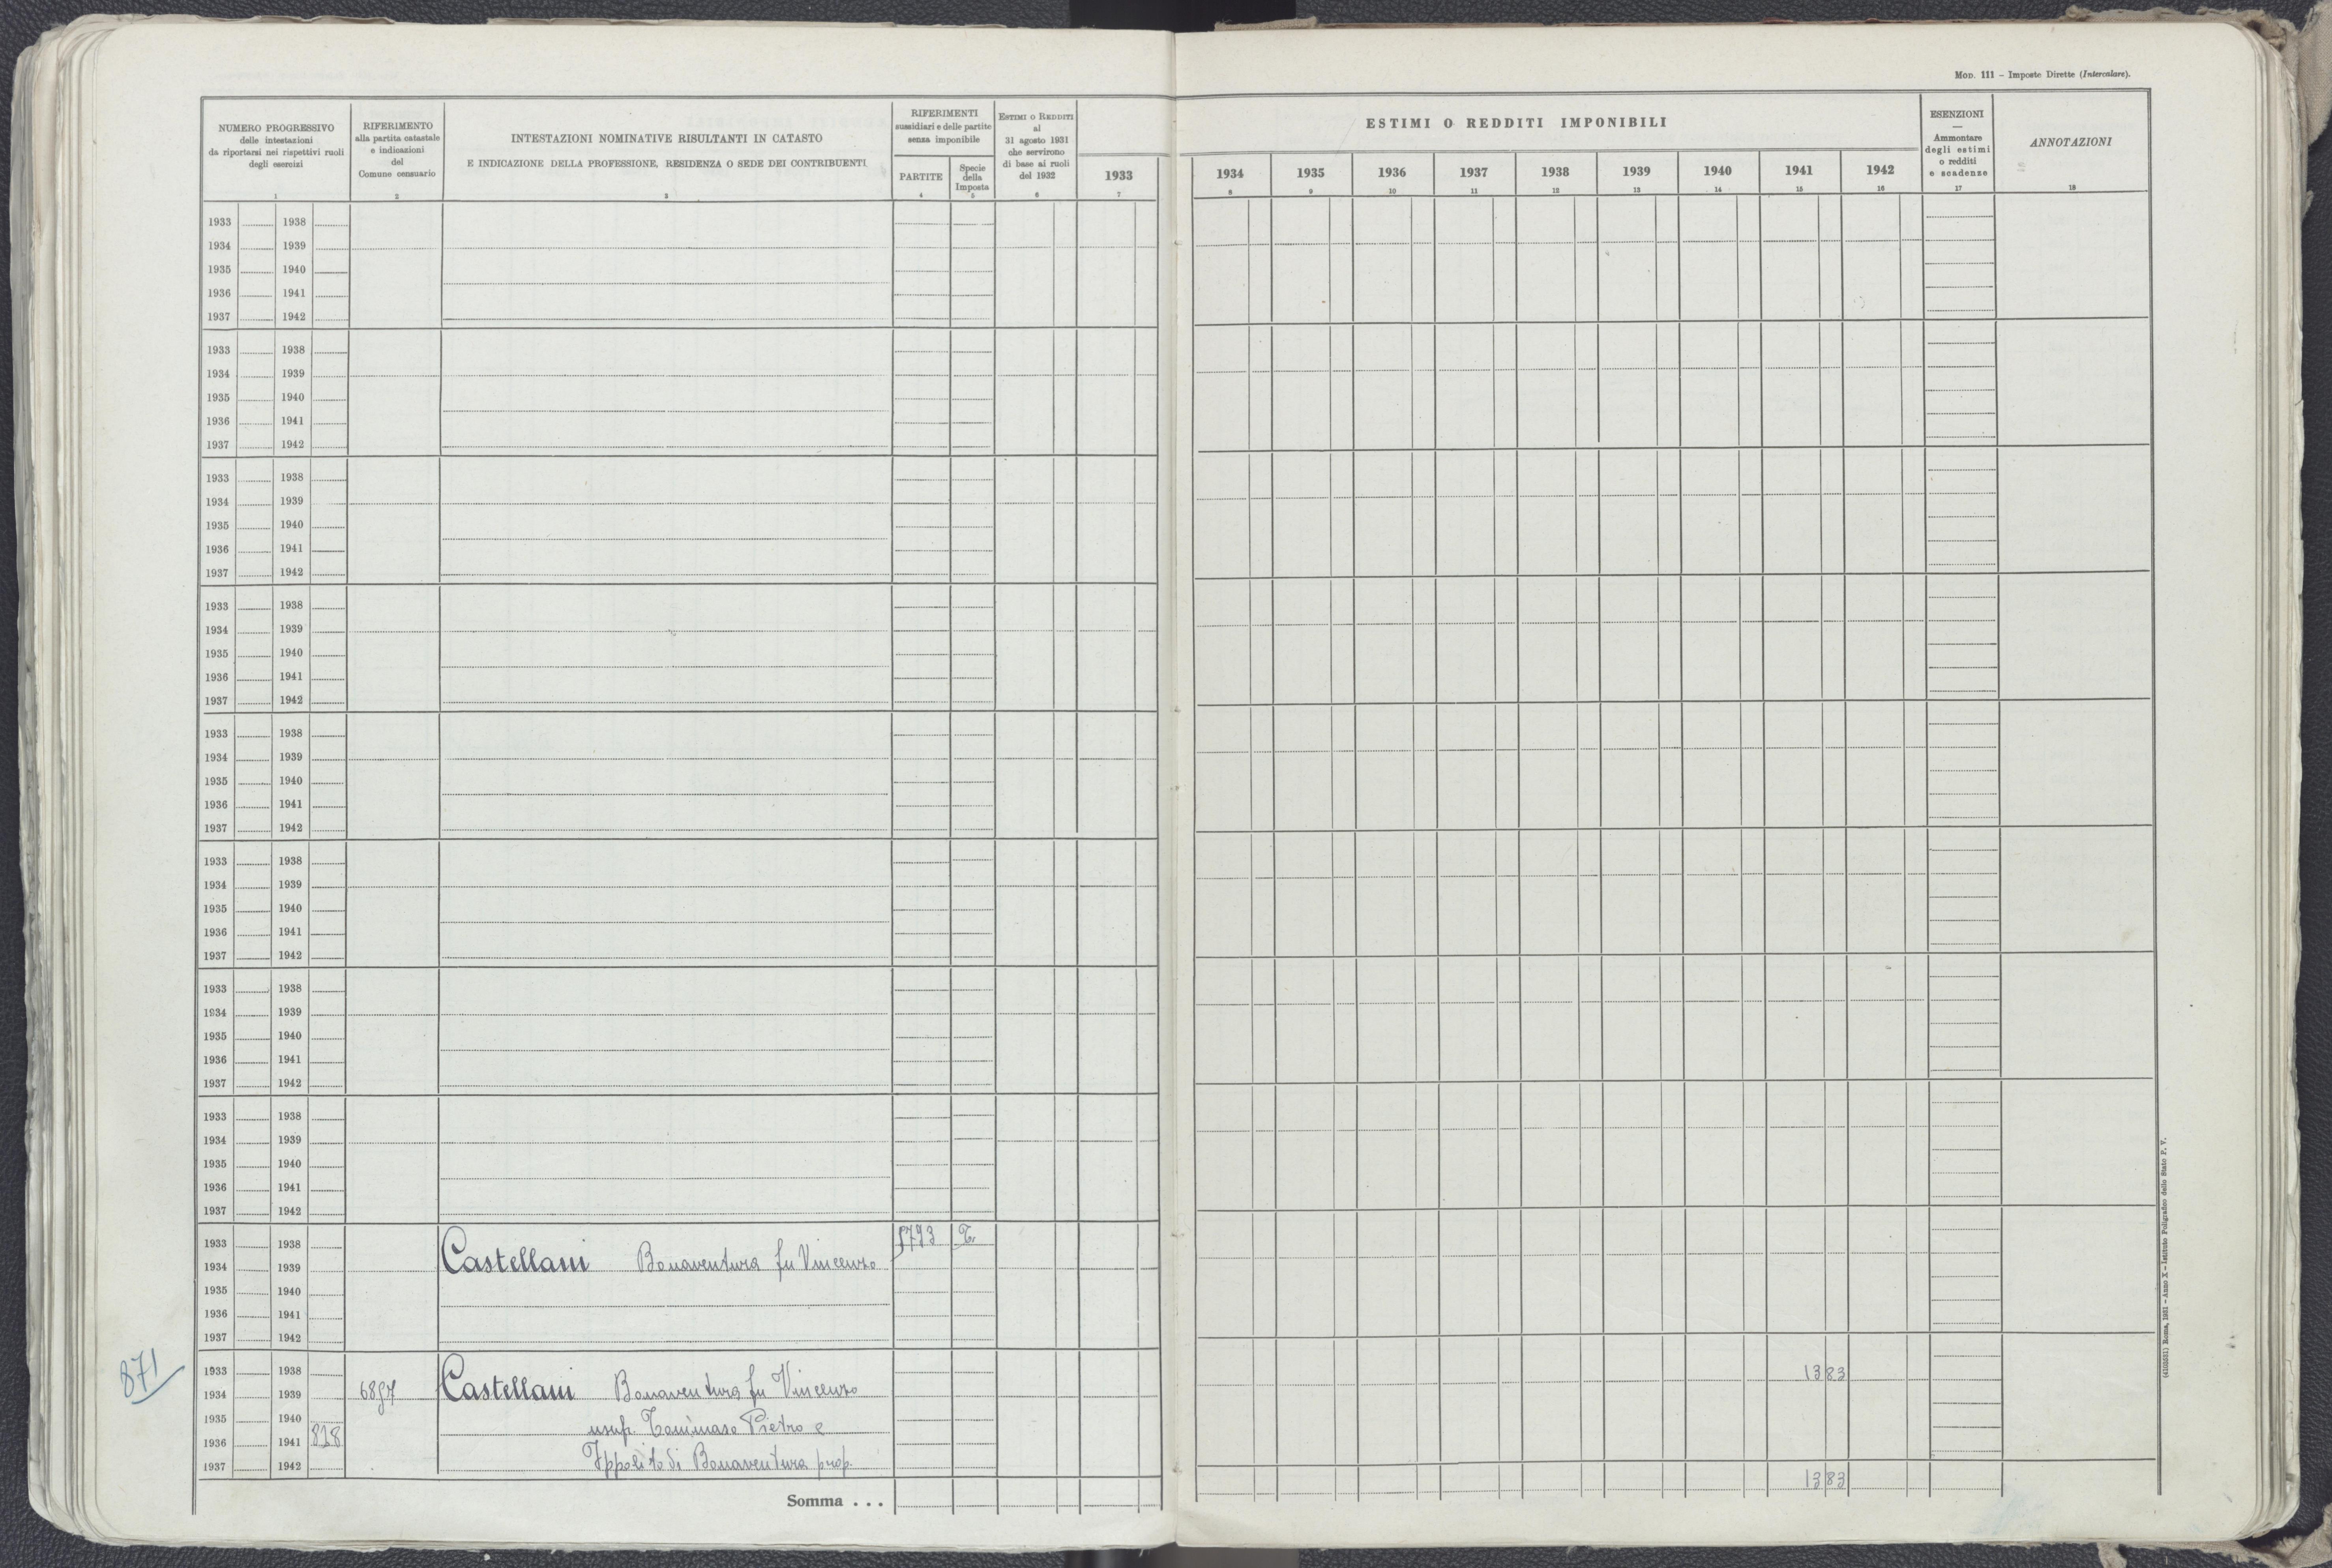 MOD. 111 – Imposte Dirette (Intercalare).
NUMERO PROGRESSIVO
delle intestazioni
da riportarsi nei rispettivi ruoli
degli esercizi
1
RIFERIMENTO
alla partita catastale
e indicazioni
del
Comune censuario
2
INTESTAZIONI NOMINATIVE RISULTANTI IN CATASTO
E INDICAZIONE DELLA PROFESSIONE, RESIDENZA O SEDE DEI CONTRIBUENTI
3
RIFERIMENTI
sussidiari e delle partite
senza imponibile
PARTITE
4
Specie
della
Imposta
5
ESTIMI O REDDITI
al
31 agosto 1931
che servirono
di base ai ruoli
del 1932
6
1933
7
ESTIMI O REDDITI IMPONIBILI
1934 1935 1936 1937 1938 1939 1940 1941 1942
8 9 10 11 12 13 14 15 16
ESENZIONI
—
Ammontare
degli estimi
o redditi
e scadenze
17
ANNOTAZIONI
18
1933 1938
1934 1939
1935 1940
1936 1941
1937 1942
1933 1938
1934 1939
1935 1940
1936 1941
1937 1942
1933 1938
1934 1939
1935 1940
1936 1941
1937 1942
1933 1938
1934 1939
1935 1940
1936 1941
1937 1942
1933 1938
1934 1939
1935 1940
1936 1941
1937 1942
1933 1938
1934 1939
1935 1940
1936 1941
1937 1942
1933 1938
1934 1939
1935 1940
1936 1941
1937 1942
1933 1938
1934 1939
1935 1940
1936 1941
1937 1942
1933 1938 T.
1934 1939 Castellani Bonaventura fu Vincenzo
1935 1940
1936 1941
1937 1942
871
1933 1938 1383
1934 1939 6857 Castellani Bonaventura fu Vincenzo
1935 1940 usuf. Tommaso Pietro e
1936 1941 828
1937 1942 Ippolito di Bonaventura prop.
Somma . . . 1383
(403531) Roma, 1931 – Anno X – Istituto Poligrafico dello Stato P. V.